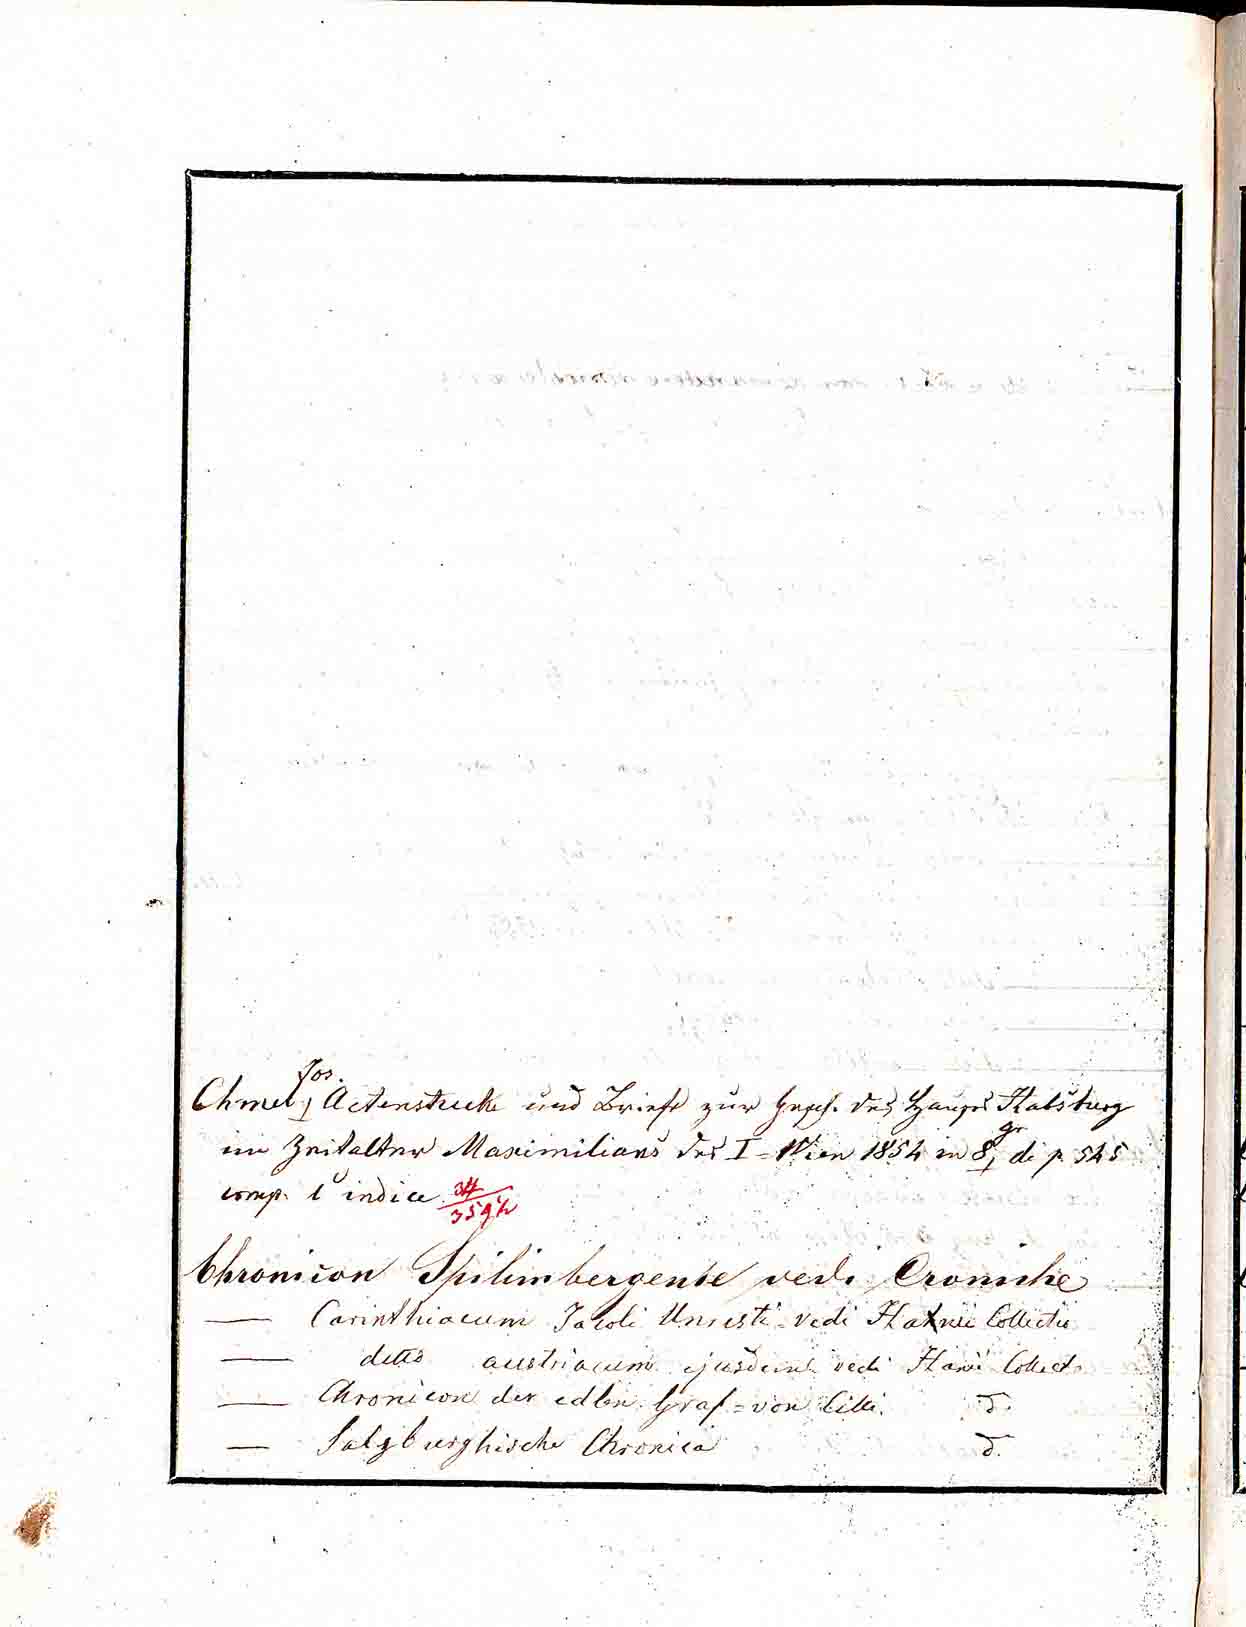 Jos.
Chmel, Actenstucke und Briefe zur Gesch. des Hauses Habsburg
im Zeitalter Maximilians des I = Wien 1854 in 8,gr di p. 545
comp. l'indice
Chronicon Spilimbergense vedi Croniche
— Carinthiacum Jacobi Unresti - vedi Hahnii Collectio
— detto austriacum ejusdem vedi Hanii Collect.
— Chronicon der edlen Graf = von Cilli. d.
— Salzburghische Chronica d.